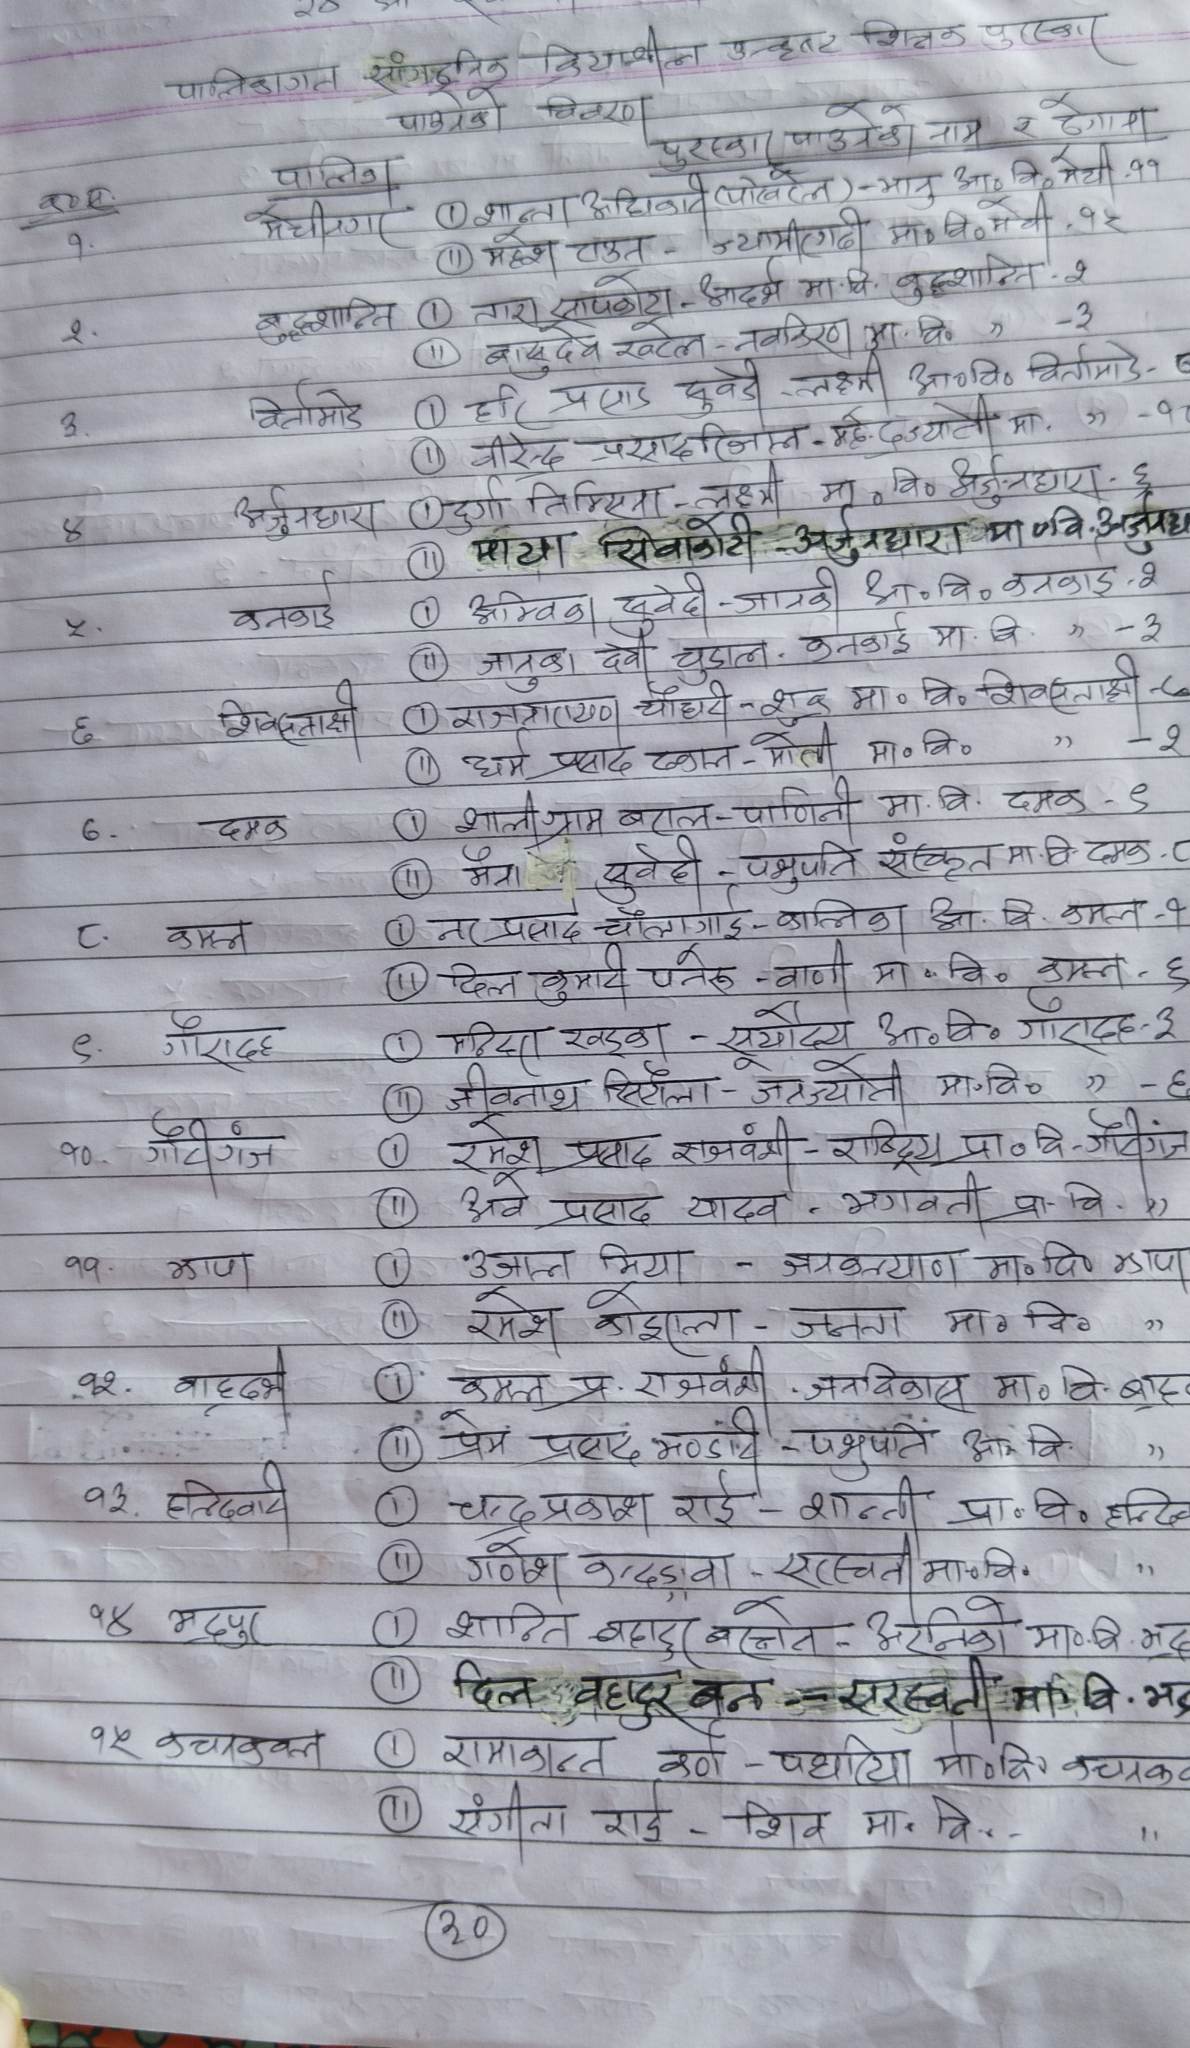 पालिकागत सांगठनिक क्रियाशील उत्कृष्ट शिक्षक पुरस्कार
पाउनेको विवरण
क्र.सं. पालिका पुरस्कार पाउनेको नाम र ठेगाना
१. मेचीनगर (I) शान्ता अधिकारी (पोखरेल) - भानु आ०वि० मेची.११
(II) महेश राउत - ज्यामीरगढी मा०वि० मेची.१५
२. बुद्धशान्ति (I) तारा सापकोटा - आदर्श मा.वि. बुद्धशान्ति - २
(II) बासुदेव खरेल - नवकिरण मा.वि० " - ३
३. विर्तामोड (I) हरि प्रसाद सुवेदी - लक्ष्मी आ०वि० विर्तामोड -
(II) वीरेन्द्र प्रसाद रिजाल - महेन्द्रज्योती मा. "
४ अर्जुनधारा (I) दुर्गा तिम्सिना - लक्ष्मी मा०वि० अर्जुनधारा - ६
(II) माया सिवाकोटी - अर्जुनधारा मा०वि.
५. कनकाई (I) अम्विका सुवेदी - जानकी आ०वि० कनकाइ - २
(II) जानुका देवी चुडाल - कनकाई मा.वि. " - ३
६ शिवसताक्षी (I) राजनारायण चौधरी - शुक्र मा०वि० शिवसताक्षी -
(II) धर्म प्रसाद ढकाल - मोती मा०वि० " - २
७. दमक (I) शालीग्राम बराल - पाणिनी मा.वि. दमक - ९
(II) मैत्रा सुवेदी - पशुपति संस्कृत मा.वि. दमक.८
८. कमल (I) नर प्रसाद चौलागाई - कालिका आ.वि. कमल - १
(II) दिल कुमारी पनेरू - वाणी मा०वि० कमल - ६
९. गौरादह (I) मन्दिरा खड्का - सूर्योदय आ०वि० गौरादह - ३
(II) जीवनाथ सिटौला - जनज्योती मा०वि० " - ६
१०. गौरीगंज (I) रमेश प्रसाद राजवंशी - राष्ट्रिय प्रा०वि - गौरीगंज
(II) प्रसाद यादव - भगवती प्रा.वि. "
११. झापा (I) उजाल मिया - जनकल्याण मा०वि० झापा
(II) रमेश कोइराला - जनता मा० वि० "
१२. वाह्रदशी (I) कमल प्र. राजवंशी - जनविकास मा० वि.
(II) प्रेम प्रसाद भण्डारी - पशुपति आ. वि. "
१३. हल्दिवारी (I) चन्द्रप्रकाश राई - शान्ती प्रा०वि०
(II) गणेश कन्दङ्वा - सरस्वती मा०वि. "
१४ भद्रपुर (I) शान्ति बहादुर बस्नेत - अरनिको मा०वि.
(II) दिल बहादुर बल - सरस्वती मा.वि.
१५ कचनकवल (I) रामाकान्त कर्ण - पथरिया मा०वि०
(II) संगीता राई - शिव मा.वि. - "
३०